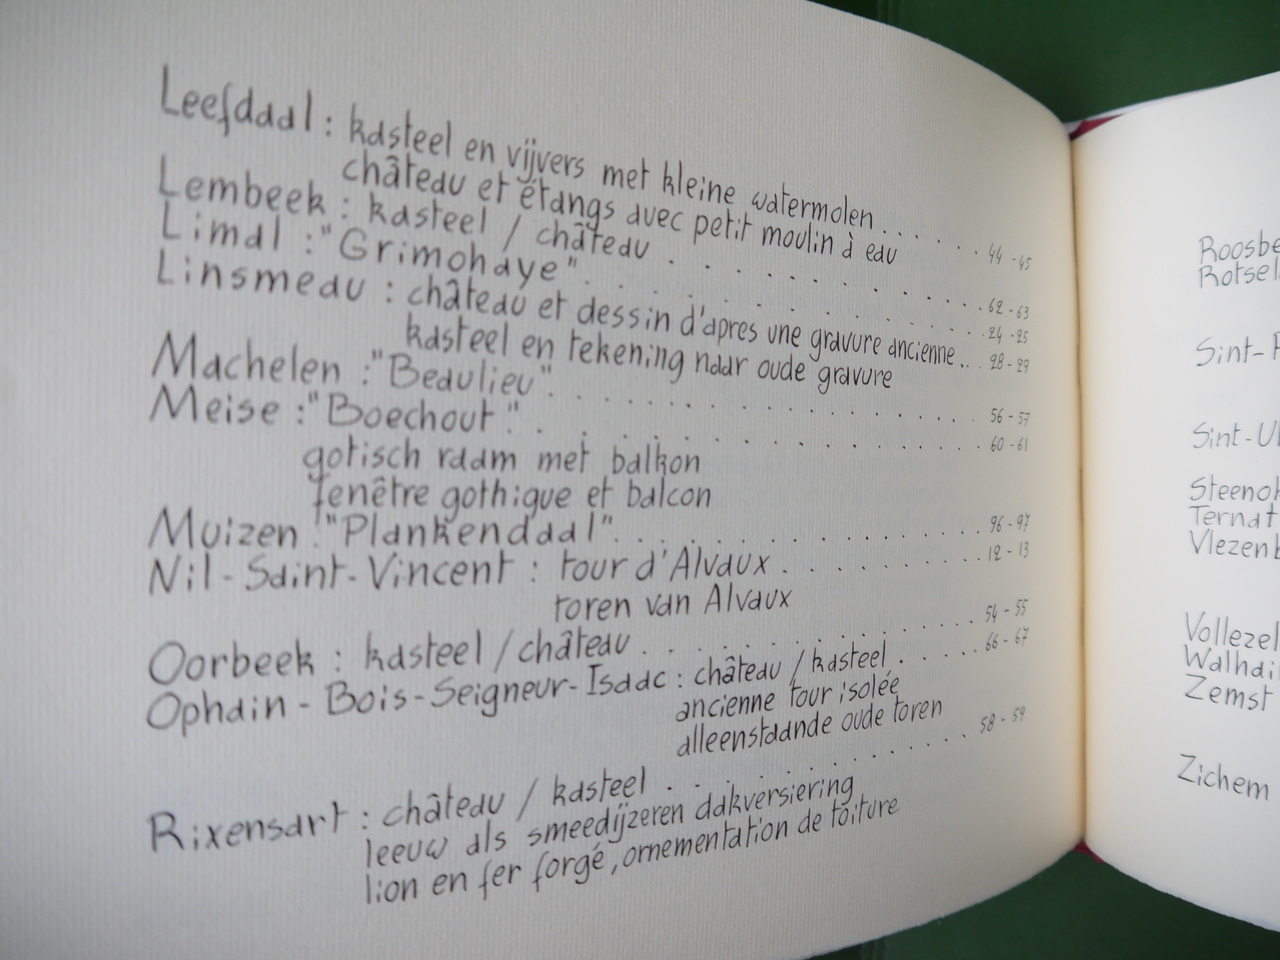 Leefdaal : kasteel en vijvers met kleine watermolen . . . . . . . 44 - 45
château et étangs avec petit moulin à eau
Lembeek : kasteel / château . . . . . . . . . . . . 62 - 63
Limal : "Grimohaye" . . . . . . . . . . . . . . 24 - 25
Linsmeau : château et dessin d'apres une gravure ancienne . . . 28 - 29
kasteel en tekening naar oude gravure
Machelen : "Beaulieu" . . . . . . . . . . . . . . . . 56 - 57
Meise : "Boechout" . . . . . . . . . . . . . . . 60 - 61
gotisch raam met balkon
fenêtre gothique et balcon
Muizen : "Plankendaal" . . . . . . . . . . . . . . . 96 - 97
Nil - Saint - Vincent : tour d'Alvaux . . . . . . . . . 12 - 13
toren van Alvaux
Oorbeek : kasteel / château . . . . . . . . . . . . . . 54 - 55
Ophain - Bois - Seigneur - Isaac : château / kasteel . . . . . 66 - 67
ancienne tour isolée
alleenstaande oude toren
Rixensart : château / kasteel . . . . . . . . . . . . . 58 - 59
leeuw als smeedijzeren dakversiering
lion en fer forgé, ornementation de toiture
Sint -
Zemst
Zichem